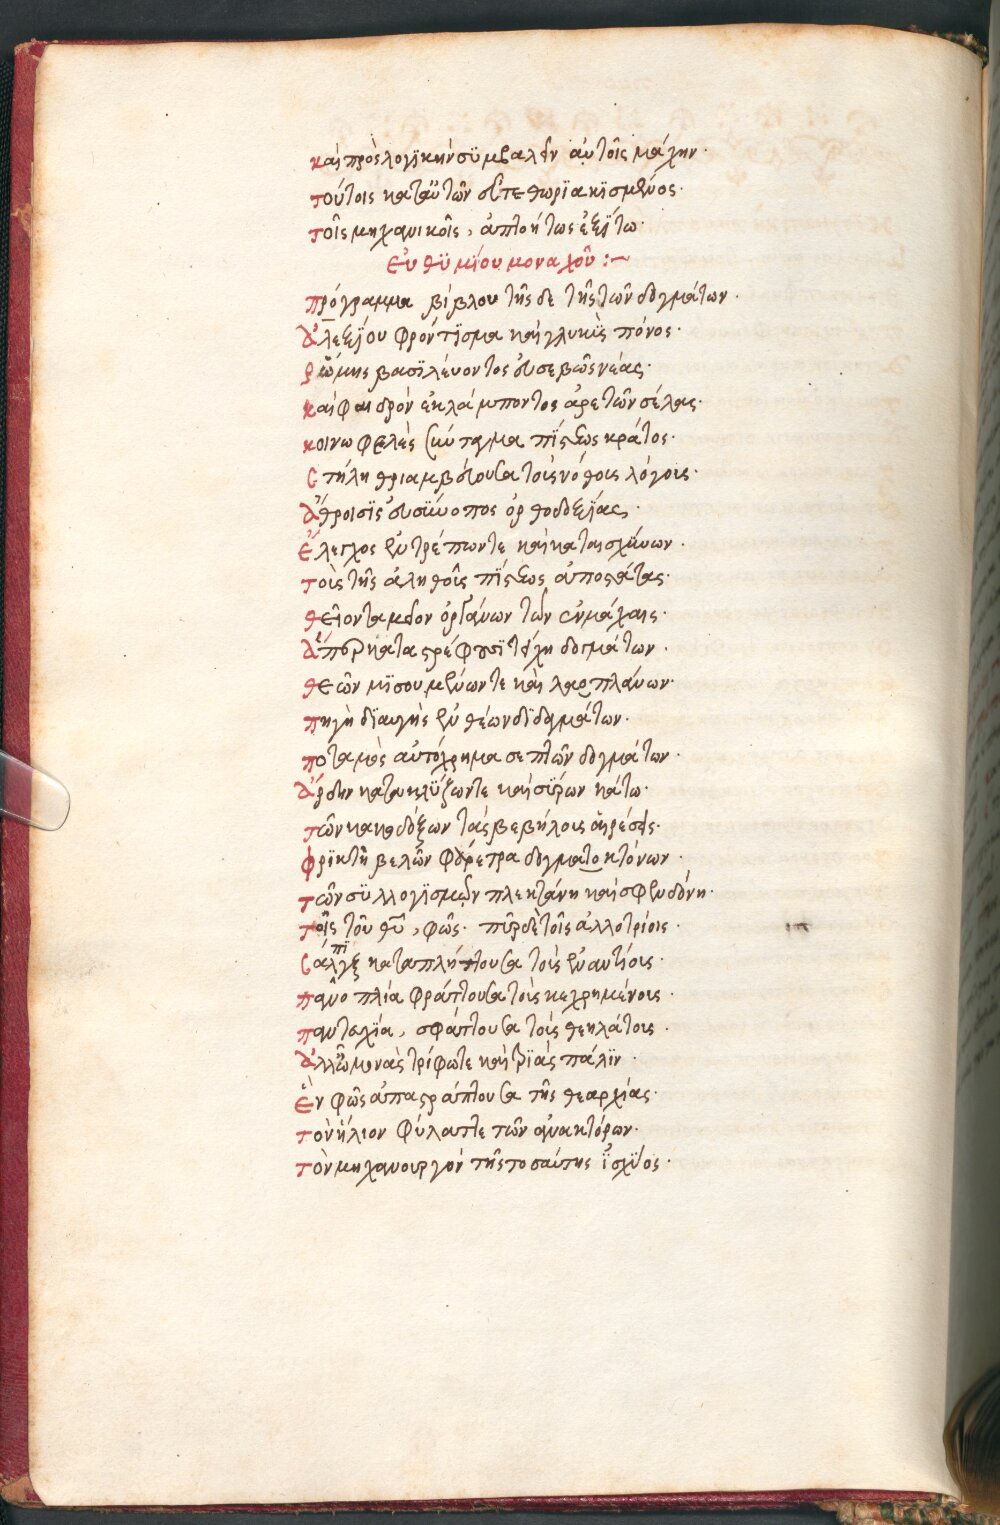 καὶ πρὸς λογϊκὴν συμβαλεῖν αὐτοῖς μάχην·
τούτοις κατ' αὐτῶν οὗτε θωρϊακϊσμένος·
τοῖς μηχανικοῖς, ἀπτοήτως ἐξϊτω·
Εὐθϋμίου μοναχοῦ :~
πρόγραμμα βίβλου τῆς δε τῆς τῶν δογμάτων·
Ἀλεξίου φρόντϊσμα καὶ γλυκὺς πόνος·
ῥώμης βασϊλεύοντος εὐσεβῶς νέας·
καὶ φαιδρὸν ἐκλάμποντος ἀρετῶν σέλας·
κοινωφελὲς σύνταγμα πίστεως κράτος·
στήλη θριαμβεύουσα τοὺς νόθους λόγους·
Ἄθροισϊς εὐσύνοπος ὀρθοδοξίας,
Ἔλεγχος ἐντρέπων τε καὶ καταισχύνων·
τοὺς τῆς ἀληθοῦς πίστεως ἀποστάτας·
θεῖον ταμεῖον ὀργάνων τῶν ἐν μάχαις·
Ἅπερ καταστρέφουσϊ τείχη δογμάτων·
θεῶν μϊσουμένων τε καὶ λαοπλάνων·
πηγὴ διαυγὴς ἐνθέων διδαγμάτων·
ποταμὸς αὐτόχρημα σεπτῶν δογμάτων·
Ἄρδην κατακλύζων τε καὶ σύρων κάτω·
τῶν κακοδόξων τὰς βεβήλους αἱρέσεις·
φρϊκτὴ βελῶν φαρέτρα δογματοκτόνων·
τῶν συλλογϊσμῶν πλεκτάνη καὶ σφενδόνη·
τοῖς τοῦ θῦ, φῶς· πῦρ δὲ τοῖς ἀλλοτρίοις·
σάλπϊγξ καταπλήττουσα τοὺς ἐναντίους·
πανοπλία φράττουσα τοὺς κεχρημένους·
παντευχία, σφάττουσα τοὺς θεηλάτους·
Ἀλλ' ὦ μονὰς τρίφωτε καὶ τριὰς πάλϊν·
Ἓν φῶς ἀπαστράπτουσα τῆς θεαρχίας·
τὸν ἥλιον φύλαττε τῶν ἀνακτόρων·
τὸν μηχανουργὸν τῆς τοσαύτης ἰσχύος·